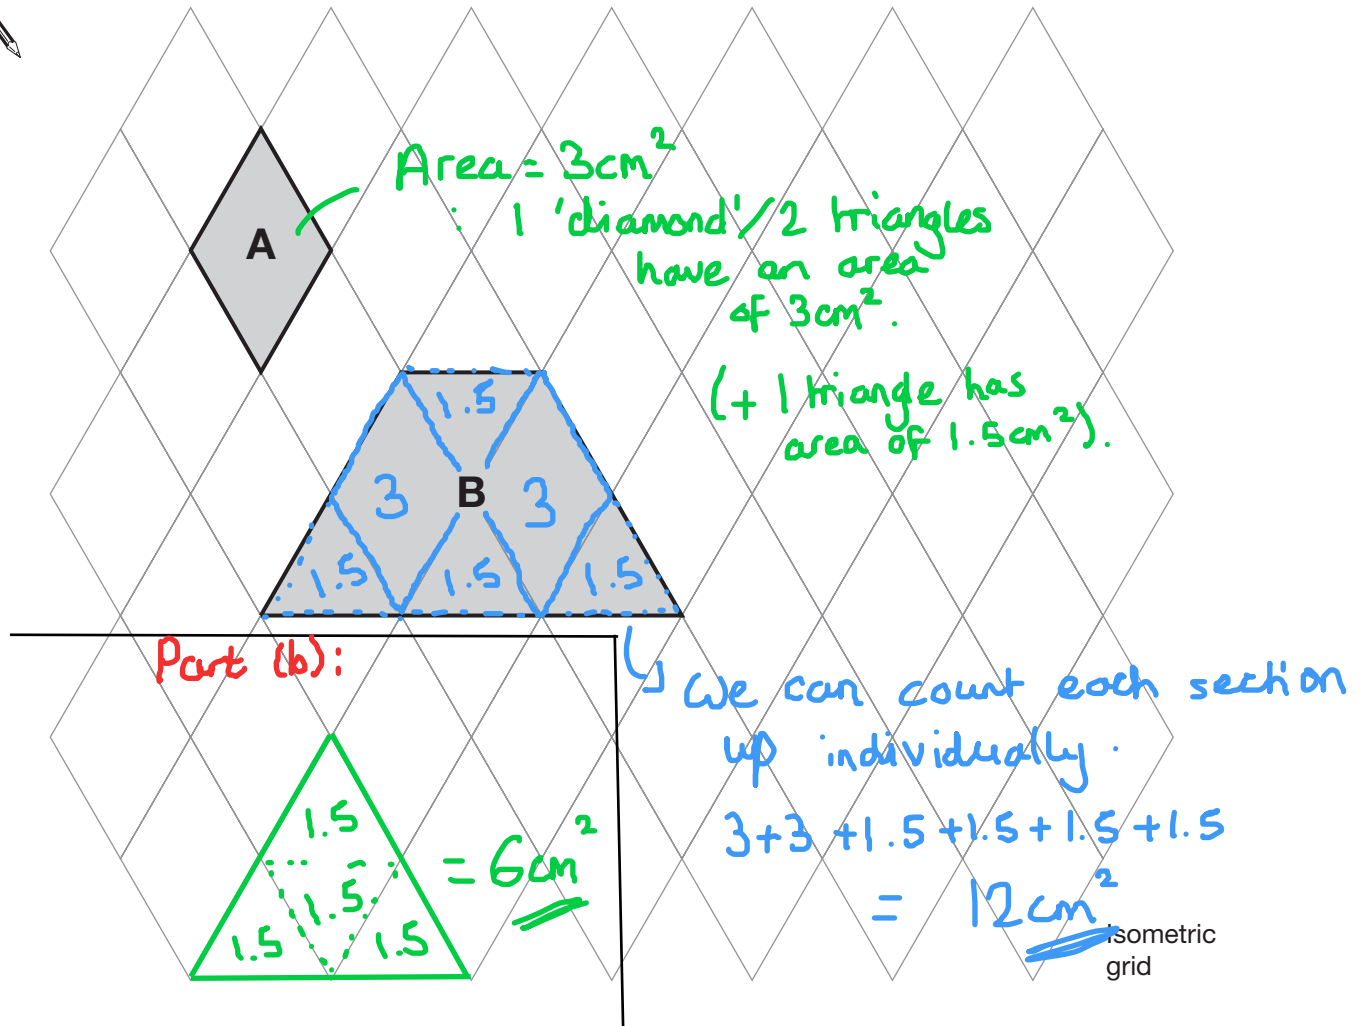 Area = 3cm²
A
∴ 1 'diamond'/2 triangles
have an area
of 3cm².
(+ 1 triangle has
area of 1.5cm²).
1.5
3 B 3
1.5 1.5 1.5
Part (b):
We can count each section
up individually.
1.5
3+3 +1.5 +1.5 + 1.5 +1.5
= 6cm²
1.5
= 12cm²
1.5 1.5
Isometric
grid